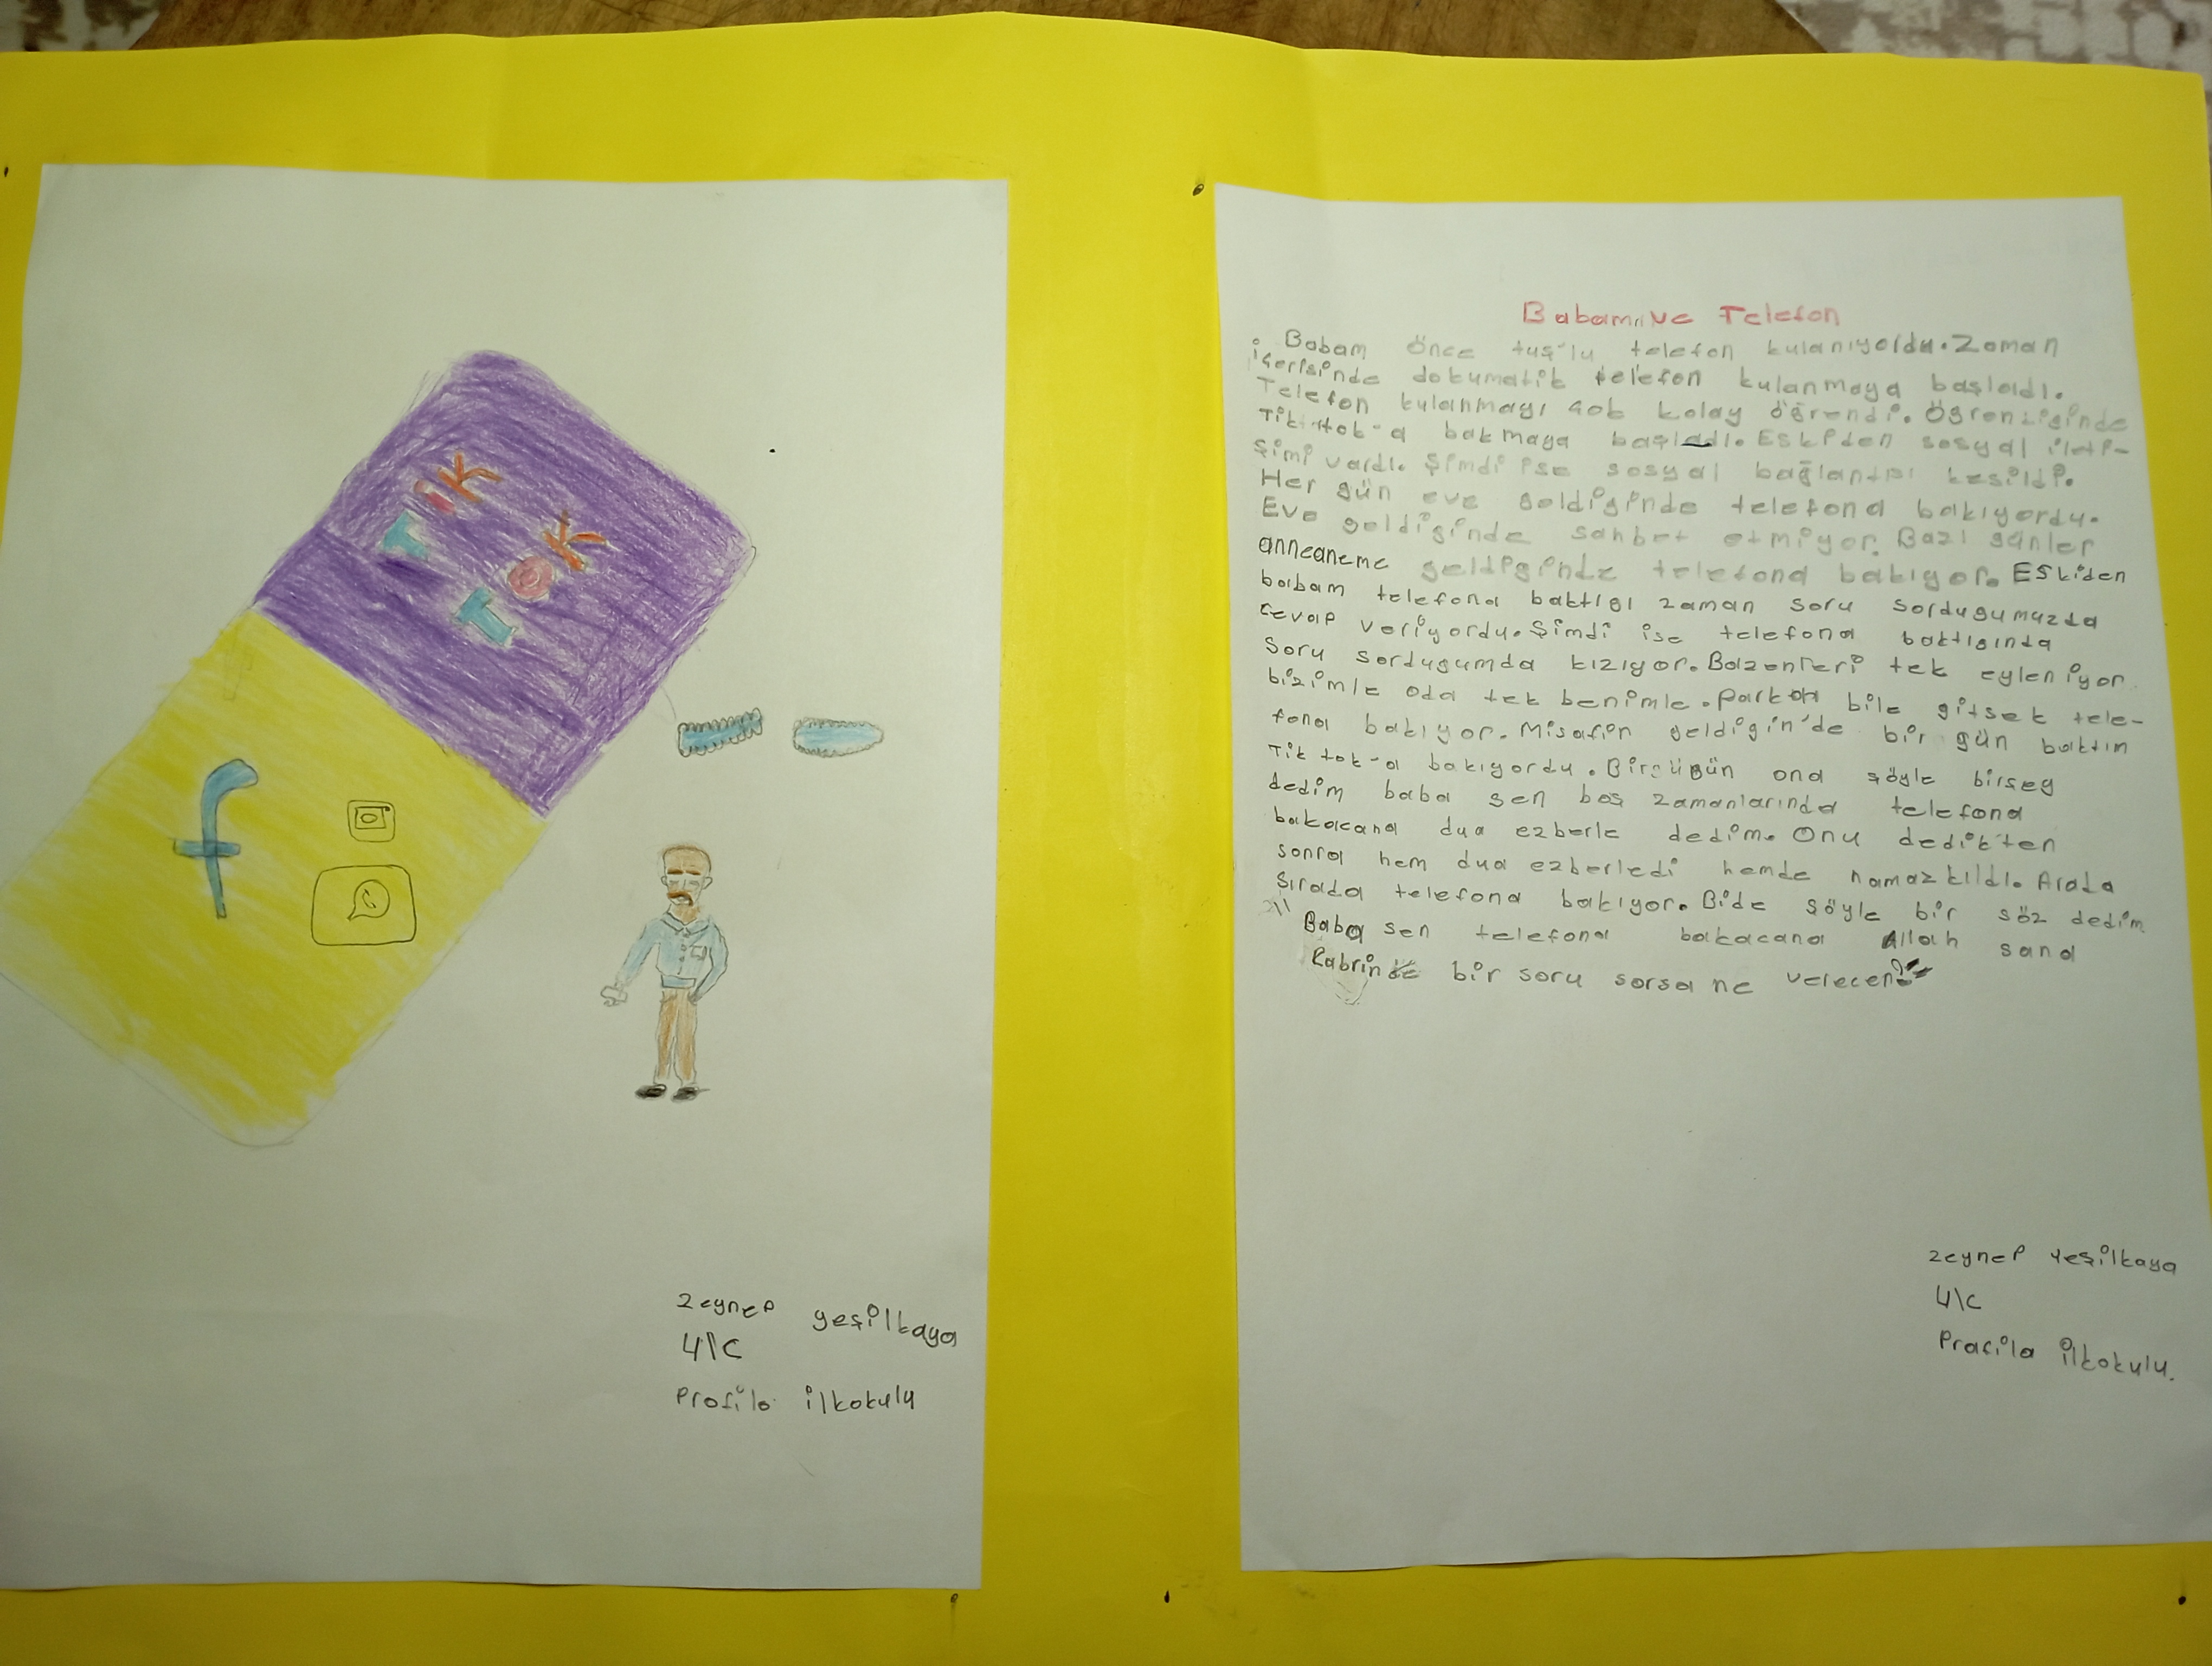 TiK
TOK
f
Zeynep yeşilkaya
4\C
Profilo ilkokulu
Babam ve Telefon
Babam önce tuş'lu telefon kulanıyordu. Zaman
içerisinde dokumatik telefon kulanmaya başladı.
Telefon kulanmayı çok kolay öğrendi. Öğrendiginde
Tik tok-a bakmaya başladı. Eskiden sosyal ileti-
şimi vardı. Şimdi ise sosyal bağlantısı kesildi.
Her gün eve geldiginde telefona bakıyordu.
Eve geldiginde sohbet etmiyor. Bazı günler
anneaneme geldiginde telefona bakıyor. Eskiden
babam telefona baktıgı zaman soru sordugumuzda
cevap veriyordu. Şimdi ise telefona baktıgında
soru sordugumda kızıyor. Bazenleri tek eyleniyor
bizimle oda tek benimle. Parka bile gitsek tele-
fona bakıyor. Misafir geldigin'de bir gün baktım
Tik tok-a bakıyordu. Birgün ona şöyle birşey
dedim baba sen boş zamanlarında telefona
bakacana dua ezberle dedim. Onu dedik'ten
sonra hem dua ezberledi hemde namaz kıldı. Arada
sırada telefona bakıyor. Bide şöyle bir söz dedim
"Baba sen telefona bakacana Allah sana
Kabrinde bir soru sorsa ne verecen?"
Zeynep Yeşilkaya
4\C
Profilo ilkokulu.